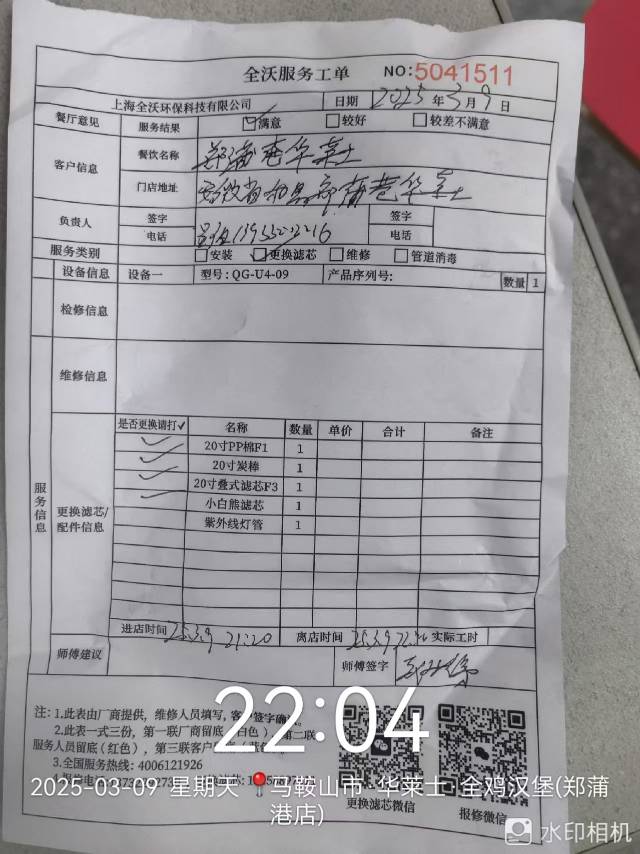 全沃服务工单 NO:5041511
上海全沃环保科技有限公司 日期 2025 年 3 月 9 日
餐厅意见 服务结果 满意 较好 较差不满意
客户信息 餐饮名称 郑蒲港华莱士
门店地址 华莱士
负责人 签字 签字
电话 电话
服务类别 安装 更换滤芯 维修 管道消毒
设备信息 设备一 型号: QG-U4-09 产品序列号: 数量 1
检修信息
维修信息
服务信息
更换滤芯/配件信息
是否更换请打✓ 名称 数量 单价 合计 备注
✓ 20寸PP棉F1 1
✓ 20寸炭棒 1
✓ 20寸叠式滤芯F3 1
✓ 小白熊滤芯 1
紫外线灯管 1
进店时间 25.3.9 21:20 离店时间 25.3.9 实际工时
师傅建议 师傅签字
注: 1.此表由厂商提供, 维修人员填写, 客户签字确认
2.此表一式三份, 第一联厂商留底 (白色) 第二联
服务人员留底 (红色), 第三联客户
3.全国服务热线: 4006121926
更换滤芯微信 报修微信
22:04
2025-03-09 星期天 马鞍山市·华莱士·全鸡汉堡(郑蒲
港店)
水印相机